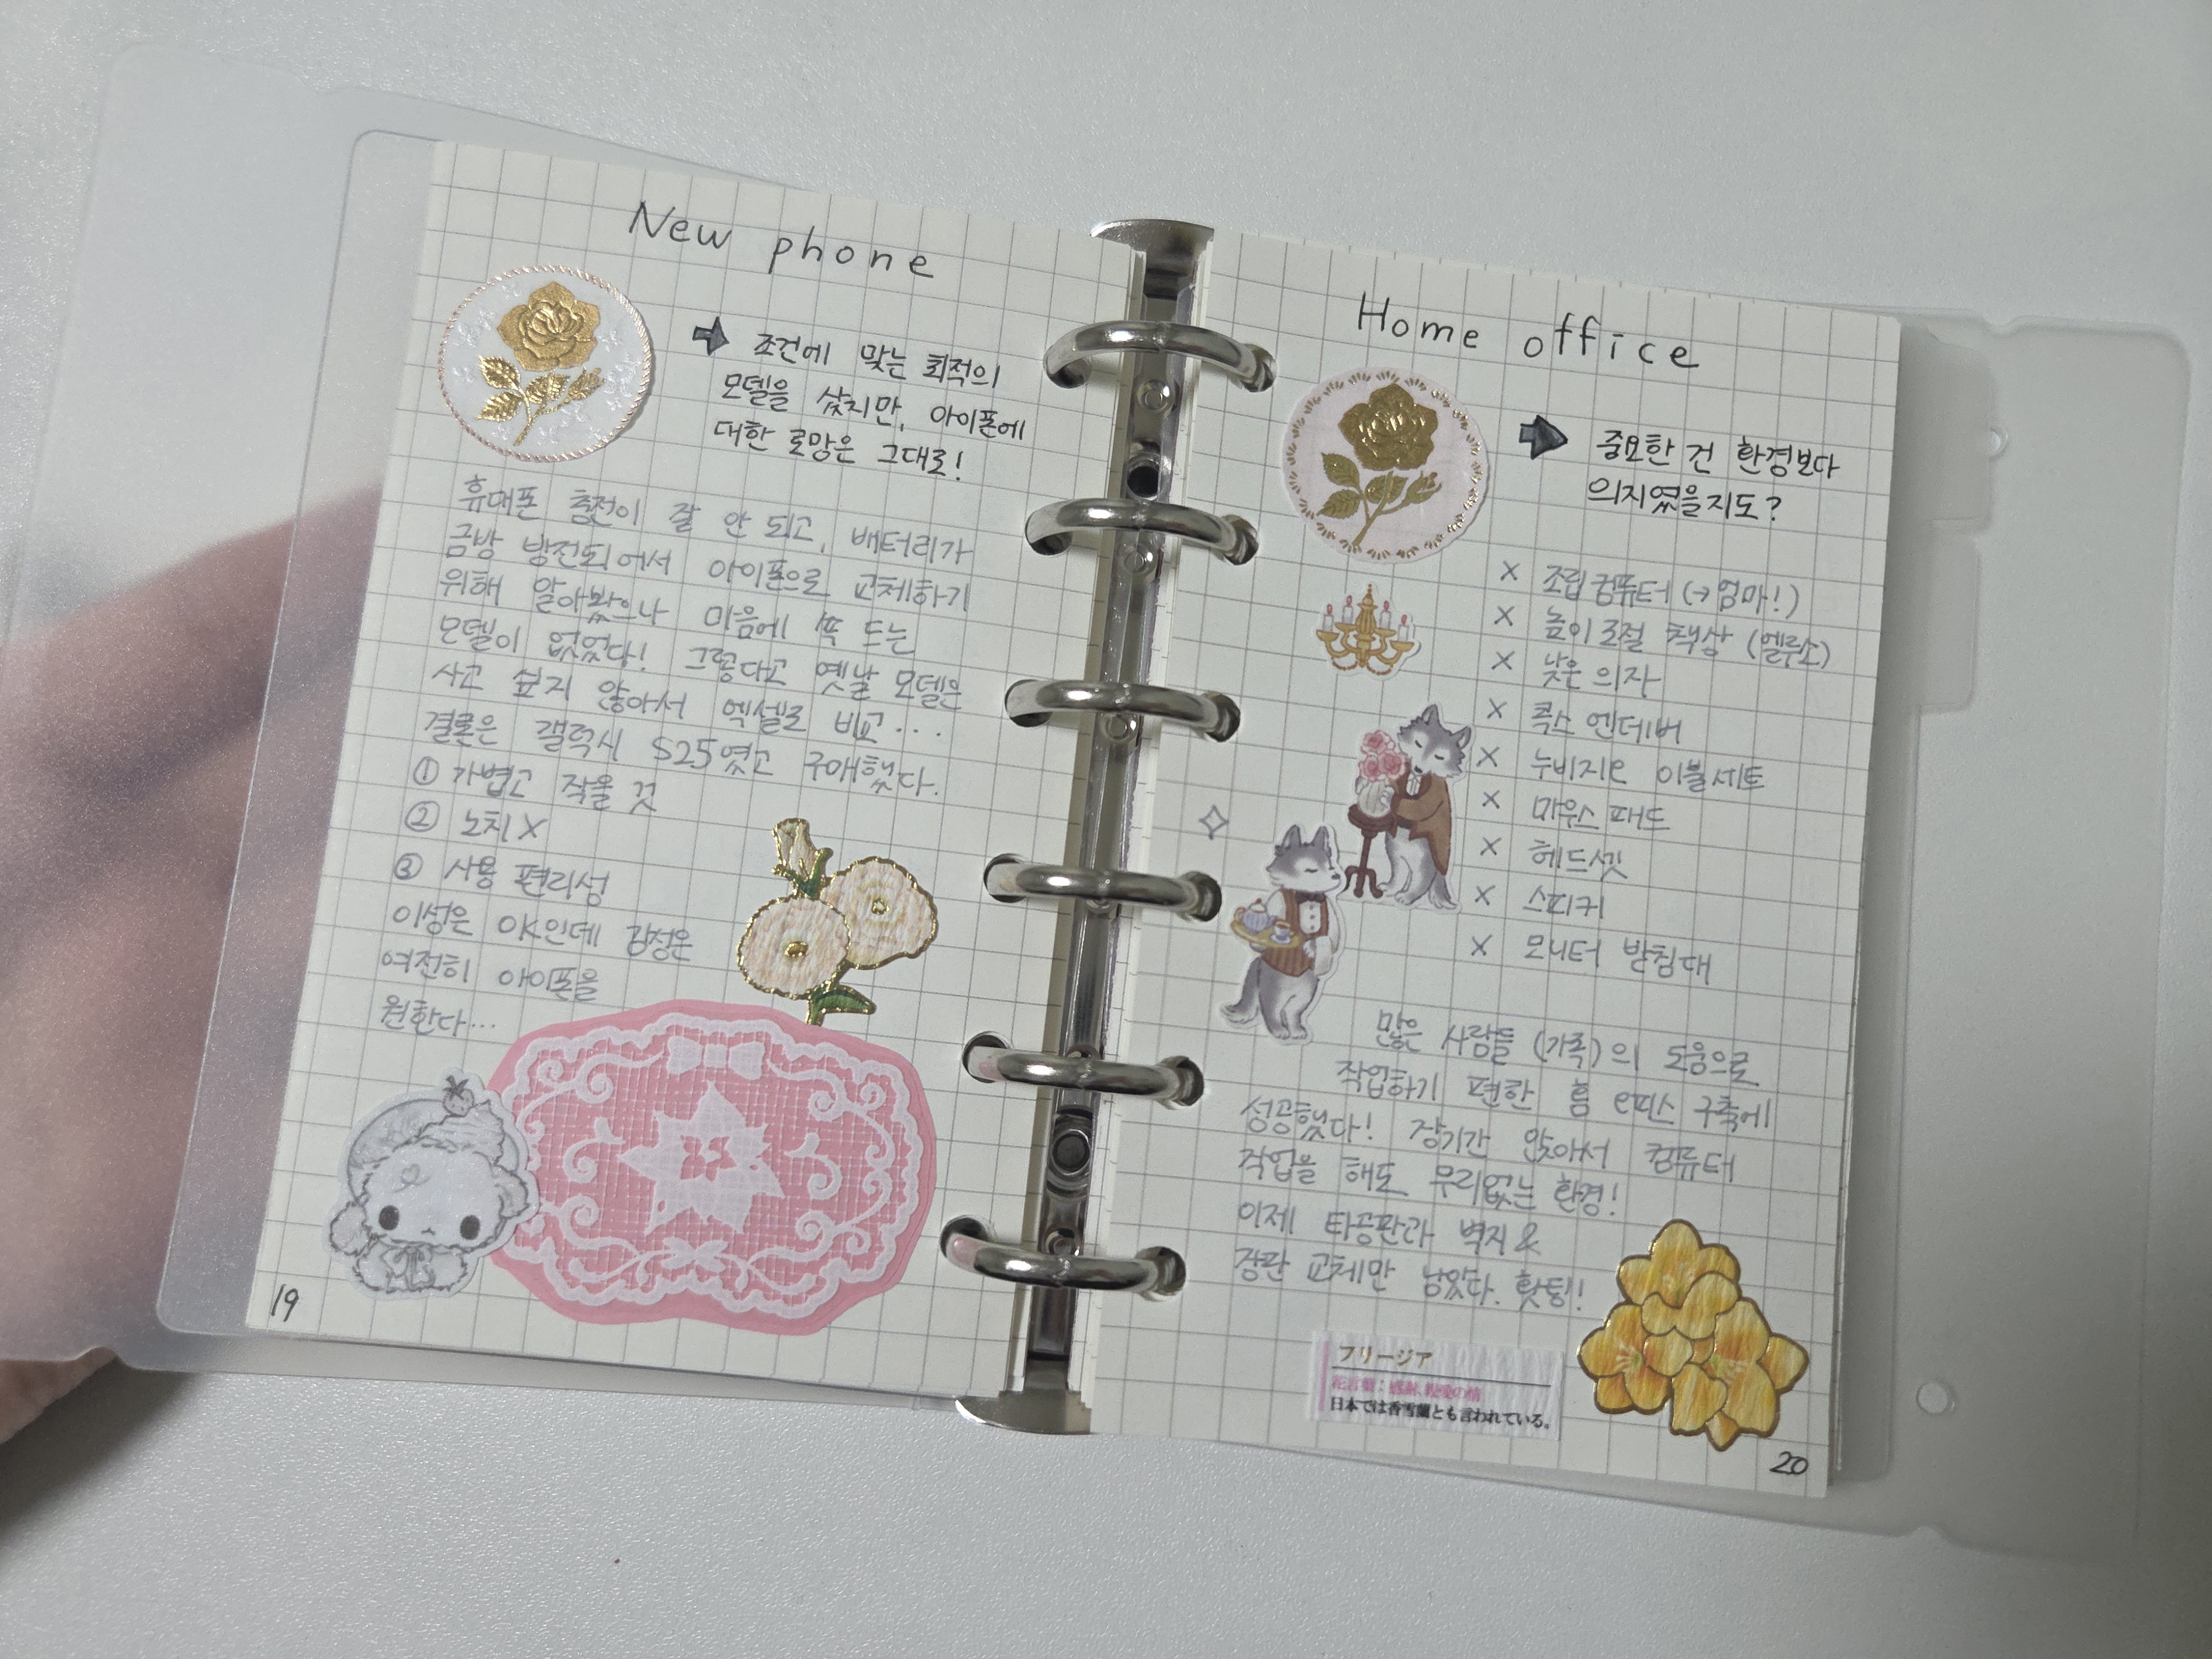 New phone
조건에 맞는 최적의
모델을 샀지만, 아이폰에
대한 로망은 그대로!
휴대폰 충전이 잘 안 되고, 배터리가
금방 방전되어서 아이폰으로 교체하기
위해 알아봤으나 마음에 쏙 드는
모델이 없었다! 그렇다고 옛날 모델은
사고 싶지 않아서 엑셀로 비교...
결론은 갤럭시 S25였고 구매했다.
① 가볍고 작을 것
② 노치 X
③ 사용 편리성
이성은 OK인데 감정은
여전히 아이폰을
원한다...
19
Home office
중요한 건 환경보다
의지였을지도?
× 조립컴퓨터 (→엄마!)
× 높이 조절 책상 (멜루소)
× 낮은 의자
× 콕스 엔데버
× 누비지오 이불세트
× 마우스 패드
× 헤드셋
× 스피커
× 모니터 받침대
많은 사람들 (가족)의 도움으로
작업하기 편한 홈 오피스 구축에
성공했다! 장기간 앉아서 컴퓨터
작업을 해도 무리없는 환경!
이제 타공판과 벽지 &
장판 교체만 남았다. 홧팅!
フリージア
花言葉：感謝、親愛の情
日本では香雪蘭とも言われている。
20